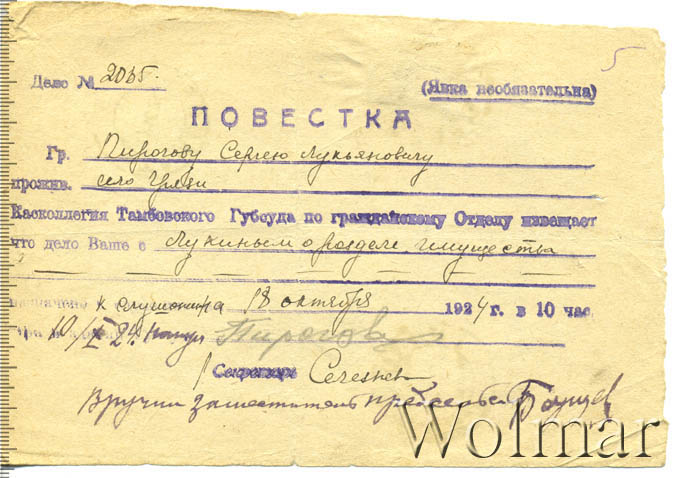 5
Дело № 2035.
(Явка необязательна)
ПОВЕСТКА
Гр. Пирогову Сергею Лукьяновичу
прожив. село Грязи
Касколлегия Тамбовского Губсуда по гражданскому Отделу извещает
что дело Ваше с Лукиным о разделе имущества
назначено к слушанию на 18 октября 1924 г. в 10 час.
10/X 24 Пирогова
Секретарь
Вручил заместитель
Wolmar